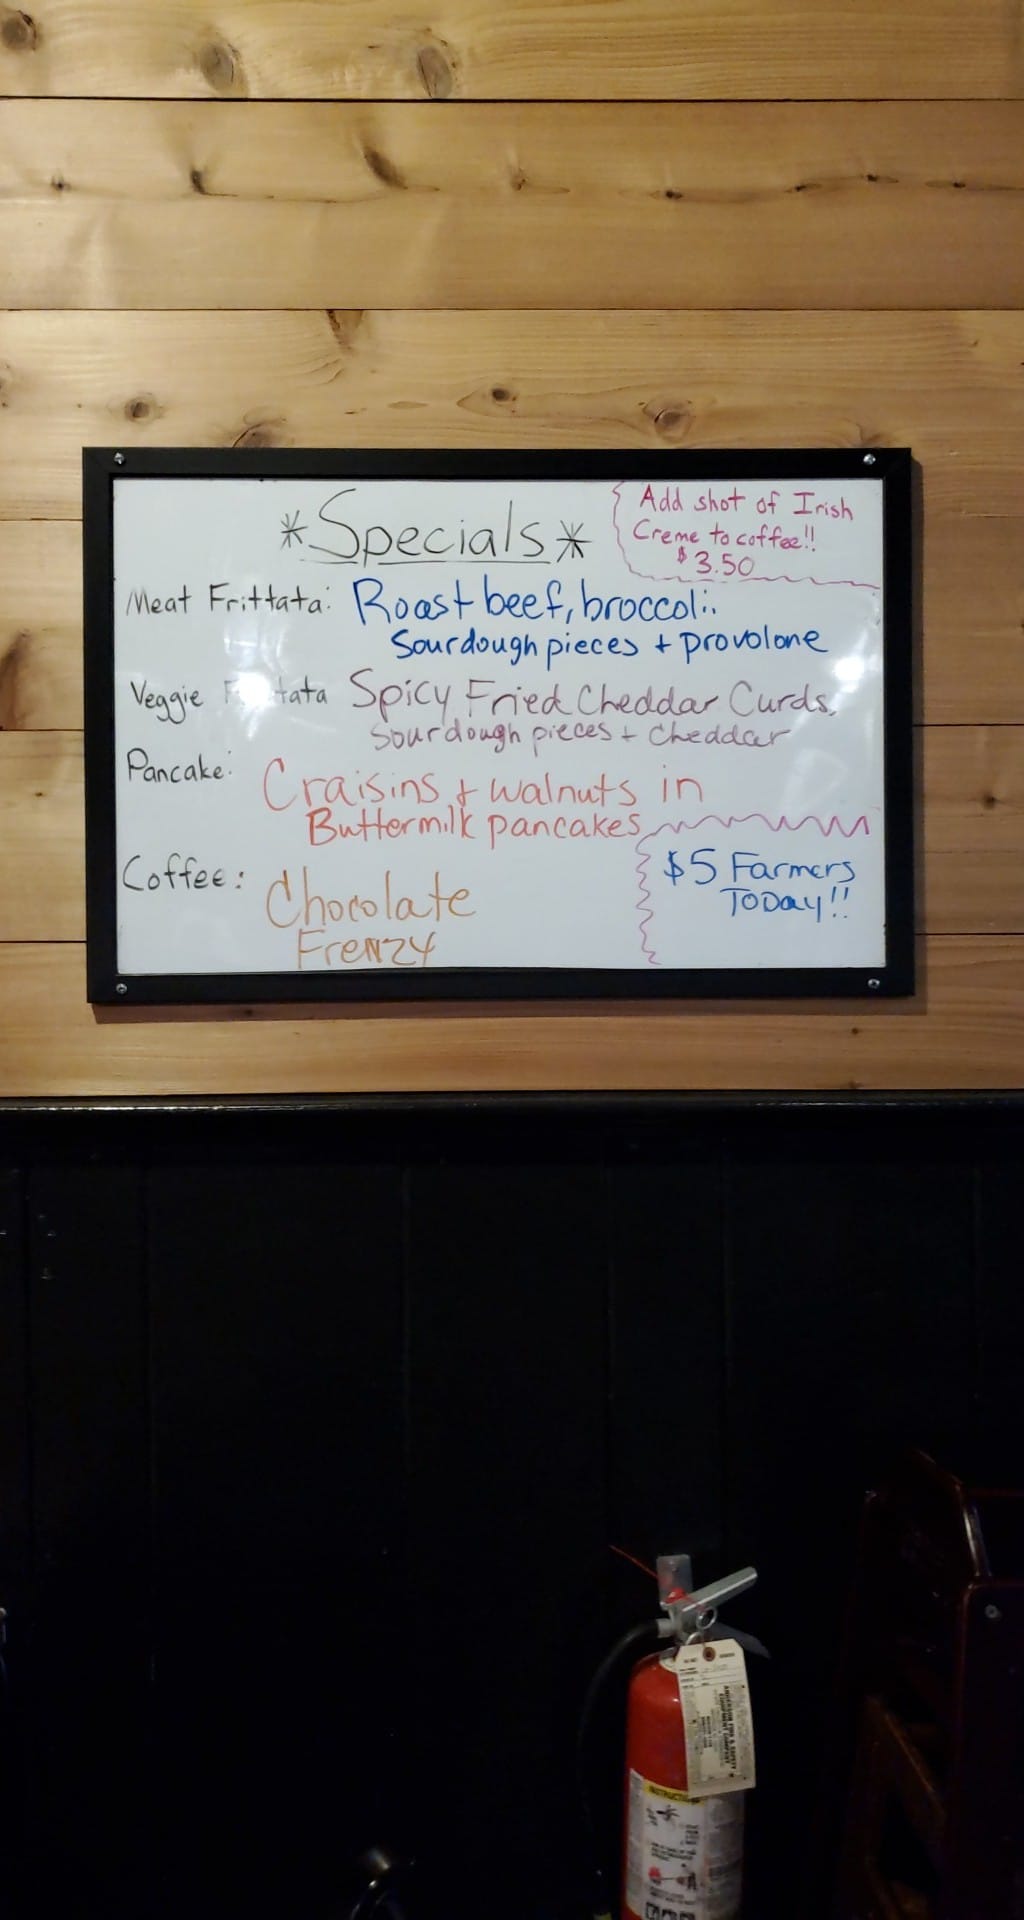 *Specials*
Add shot of Irish
Creme to coffee!!
$3.50
Meat Frittata: Roast beef, broccoli,
Sourdough pieces + provolone
Veggie Frittata Spicy Fried Cheddar Curds,
Sourdough pieces + Cheddar
Pancake: Craisins + walnuts in
Buttermilk pancakes
Coffee: Chocolate
Frenzy
$5 Farmers
Today!!
INSTRUCTIONS